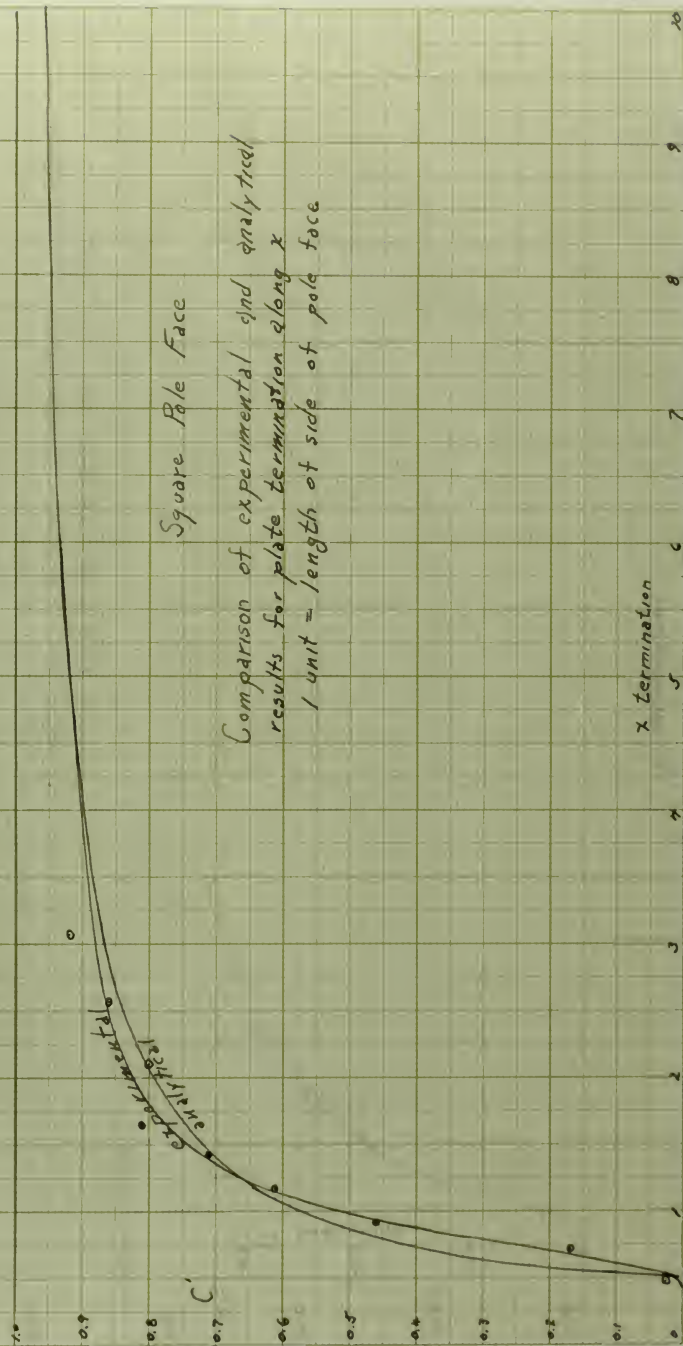 Square Pole Face
Comparison of experimental and analytical
results for plate termination along x
1 unit = length of side of pole face
experimental
analytical
C'
1.0
0.9
0.8
0.7
0.6
0.5
0.4
0.3
0.2
0.1
0
1
2
3
4
5
6
7
8
9
10
x termination